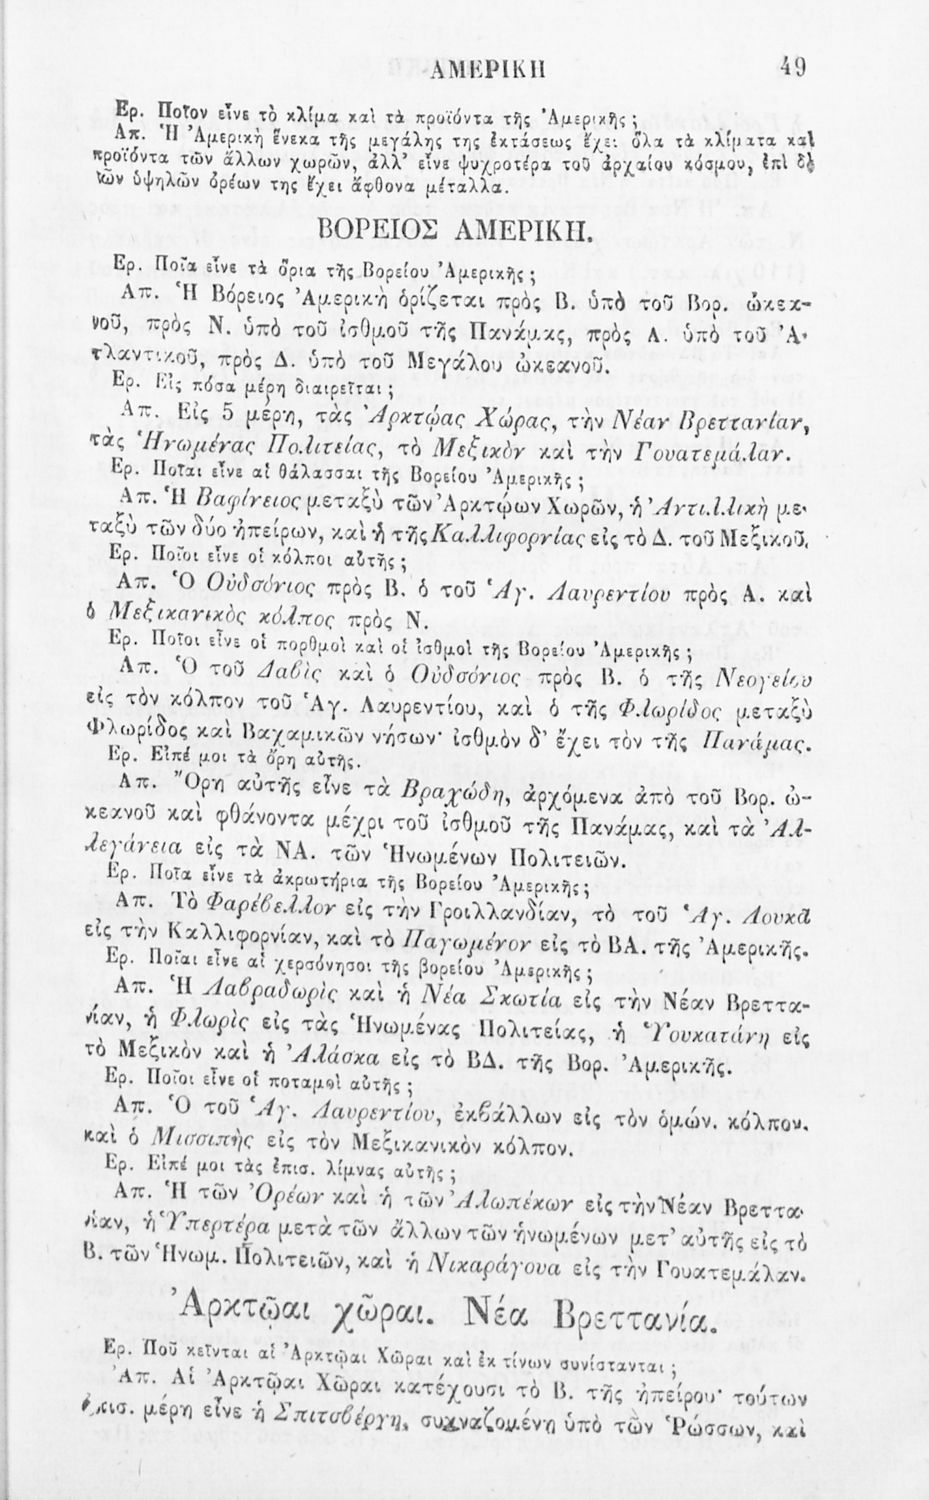 ΑΜΕΡΙΚΗ 49
Ερ. Ποῖον εἶνε τὸ κλίμα καὶ τὰ προϊόντα τῆς Ἀμερικῆς;
Απ. Ἡ Ἀμερικὴ ἕνεκα τῆς μεγάλης της ἐκτάσεως ἔχει ὅλα τὰ κλίματα καὶ
προϊόντα τῶν ἄλλων χωρῶν, ἀλλ' εἶνε ψυχροτέρα τοῦ ἀρχαίου κόσμου, ἐπὶ δὲ
τῶν ὑψηλῶν ὀρέων της ἔχει ἄφθονα μέταλλα.
ΒΟΡΕΙΟΣ ΑΜΕΡΙΚΗ.
Ερ. Ποῖα εἶνε τὰ ὅρια τῆς Βορείου Ἀμερικῆς;
Απ. Ἡ Βόρειος Ἀμερικὴ ὁρίζεται πρὸς Β. ὑπὸ τοῦ Βορ. ὠκεα-
νοῦ, πρὸς Ν. ὑπὸ τοῦ ἰσθμοῦ τῆς Πανάμας, πρὸς Α. ὑπὸ τοῦ Ἀ-
τλαντικοῦ, πρὸς Δ. ὑπὸ τοῦ Μεγάλου ὠκεανοῦ.
Ερ. Εἰς πόσα μέρη διαιρεῖται;
Απ. Εἰς 5 μέρη, τὰς Ἀρκτῴας Χώρας, τὴν Νέαν Βρεττανίαν,
τὰς Ἡνωμένας Πολιτείας, τὸ Μεξικὸν καὶ τὴν Γουατεμάλαν.
Ερ. Ποῖαι εἶνε αἱ θάλασσαι τῆς Βορείου Ἀμερικῆς;
Απ. Ἡ Βαφίνειος μεταξὺ τῶν Ἀρκτῴων Χωρῶν, ἡ Ἀντιλλικὴ με-
ταξὺ τῶν δύο ἠπείρων, καὶ ἡ τῆς Καλλιφορνίας εἰς τὸ Δ. τοῦ Μεξικοῦ.
Ερ. Ποῖοι εἶνε οἱ κόλποι αὐτῆς;
Απ. Ὁ Οὐδσόνιος πρὸς Β. ὁ τοῦ Ἁγ. Λαυρεντίου πρὸς Α. καὶ
ὁ Μεξικανικὸς κόλπος πρὸς Ν.
Ερ. Ποῖοι εἶνε οἱ πορθμοὶ καὶ οἱ ἰσθμοὶ τῆς Βορείου Ἀμερικῆς;
Απ. Ὁ τοῦ Δαβὶς καὶ ὁ Οὐδσόνιος πρὸς Β. ὁ τῆς Νεογείου
εἰς τὸν κόλπον τοῦ Ἁγ. Λαυρεντίου, καὶ ὁ τῆς Φλωρίδος μεταξὺ
Φλωρίδος καὶ Βαχαμικῶν νήσων· ἰσθμὸν δ' ἔχει τὸν τῆς Πανάμας.
Ερ. Εἰπέ μοι τὰ ὄρη αὐτῆς.
Απ. Ὄρη αὐτῆς εἶνε τὰ Βραχώδη, ἀρχόμενα ἀπὸ τοῦ Βορ. ὠ-
κεανοῦ καὶ φθάνοντα μέχρι τοῦ ἰσθμοῦ τῆς Πανάμας, καὶ τὰ Ἀλ-
λεγάνεια εἰς τὰ ΝΑ. τῶν Ἡνωμένων Πολιτειῶν.
Ερ. Ποῖα εἶνε τὰ ἀκρωτήρια τῆς Βορείου Ἀμερικῆς;
Απ. Τὸ Φαρέβελλον εἰς τὴν Γροιλλανδίαν, τὸ τοῦ Ἁγ. Λουκᾶ
εἰς τὴν Καλλιφορνίαν, καὶ τὸ Παγωμένον εἰς τὸ ΒΑ. τῆς Ἀμερικῆς.
Ερ. Ποῖαι εἶνε αἱ χερσόνησοι τῆς βορείου Ἀμερικῆς;
Απ. Ἡ Λαβραδωρὶς καὶ ἡ Νέα Σκωτία εἰς τὴν Νέαν Βρεττα-
νίαν, ἡ Φλωρὶς εἰς τὰς Ἡνωμένας Πολιτείας, ἡ Ὑουκατάνη εἰς
τὸ Μεξικὸν καὶ ἡ Ἀλάσκα εἰς τὸ ΒΔ. τῆς Βορ. Ἀμερικῆς.
Ερ. Ποῖοι εἶνε οἱ ποταμοὶ αὐτῆς;
Απ. Ὁ τοῦ Ἁγ. Λαυρεντίου, ἐκβάλλων εἰς τὸν ὁμών. κόλπον.
καὶ ὁ Μισσιπὴς εἰς τὸν Μεξικανικὸν κόλπον.
Ερ. Εἰπέ μοι τὰς ἐπισ. λίμνας αὐτῆς;
Απ. Ἡ τῶν Ὀρέων καὶ ἡ τῶν Ἀλωπέκων εἰς τὴν Νέαν Βρεττα-
νίαν, ἡ Ὑπερτέρα μετὰ τῶν ἄλλων τῶν ἡνωμένων μετ' αὐτῆς εἰς τὸ
Β. τῶν Ἡνωμ. Πολιτειῶν, καὶ ἡ Νικαράγουα εἰς τὴν Γουατεμάλαν.
Ἀρκτῷαι χῶραι. Νέα Βρεττανία.
Ερ. Ποῦ κεῖνται αἱ Ἀρκτῷαι Χῶραι καὶ ἐκ τίνων συνίστανται;
Απ. Αἱ Ἀρκτῷαι Χῶραι κατέχουσι τὸ Β. τῆς ἠπείρου· τούτων
μέρη εἶνε ἡ Σπιτσβέργη, συχναζομένη ὑπὸ τῶν Ῥώσσων, καὶ